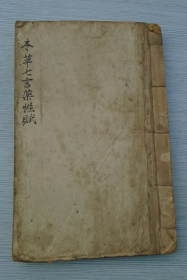 本草七言藥性賦